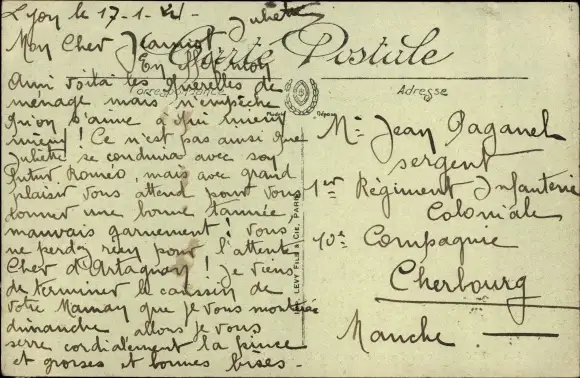 Lyon le 17-1-
Juliette
Mon Cher Jeannot
Carte Postale
Correspondance
Adresse
Ainsi voilà les querelles de
ménage mais n'empêche
qu'on s'aime à qui mieux
mieux ! Ce n'est pas ainsi que
Juliette se conduira avec son
futur Roméo, mais avec grand
plaisir vous attend pour vous
donner une bonne tannée,
mauvais garnement ! Vous
ne perdez rien pour l'attente
Cher d'Artagnan ! Je viens
de terminer le coussin de
votre Maman que je vous montrerai
dimanche alors je vous
serre cordialement la pince
et grosses et bonnes bises -
LEVY FILS & Cie, PARIS
Mr Jean Paganel
sergent
1er Régiment Infanterie
Coloniale
10e Compagnie
Cherbourg
Manche.